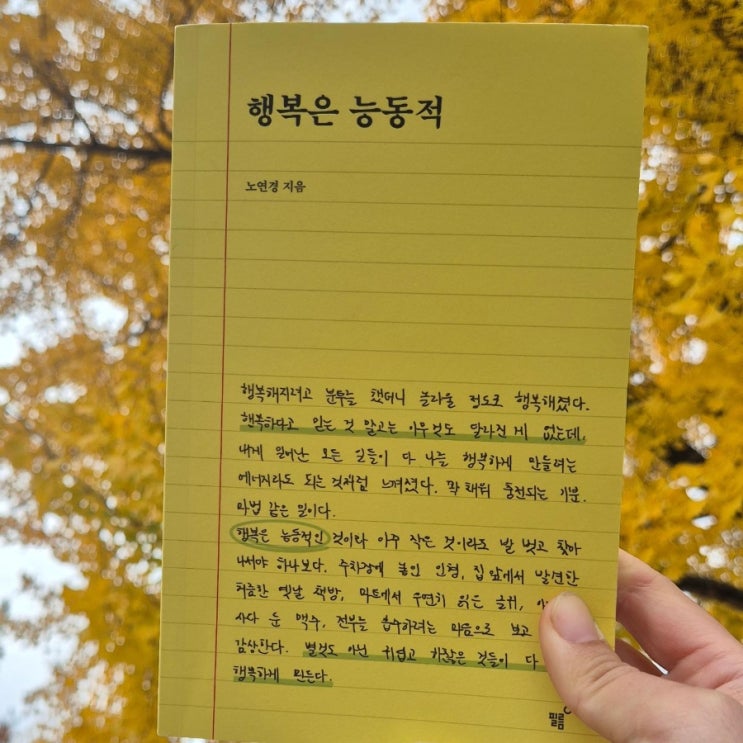 행복은 능동적
노연경 지음
행복해지려고 분투를 했더니 놀라울 정도로 행복해졌다.
행복하다고 믿는 것 말고는 아무것도 달라진 게 없는데,
내게 일어난 모든 일들이 다 나를 행복하게 만들려는
에너지라도 되는 것처럼 느껴졌다. 꽉 채워 충전되는 기분.
마법 같은 일이다.
행복은 능동적인 것이라 아주 작은 것이라도 발 벗고 찾아
나서야 하나보다. 주차장에 놓인 인형, 집 앞에서 발견한
허름한 옛날 책방, 마트에서 우연히 읽은 글귀,
사다 둔 맥주, 전부를 흡수하려는 마음으로 보고
감상한다. 별것도 아닌 귀엽고 하찮은 것들이 다
행복하게 만든다.
필름